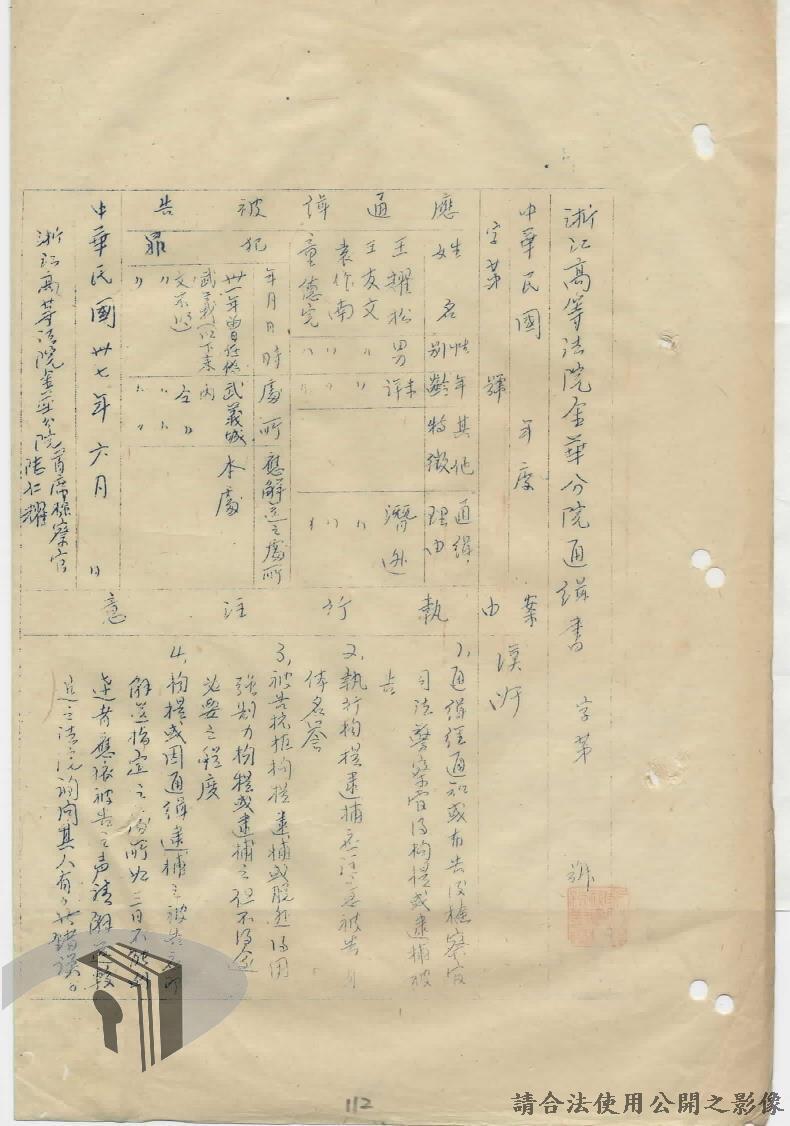 浙江高等法院金華分院通緝書 字第 號
中華民國 年度
字第 號
案由 漢奸
應通緝被告
姓名 性別 年齡 其他特徵 通緝理由
王耀松 男 未詳 潛逃
王友文 〃 〃 〃
袁作南 〃 〃 〃
童德完 〃 〃 〃
犯罪
年月日時 處所 應解送之處所
卅一年曾任偽武義 武義城內 本處
文不過 仝
〃 〃 〃
中華民國卅七年六月 日
浙江高等法院金華分院首席檢察官
陸仁耀
執行注意
1、通緝經通知或布告後檢察官
司法警察官得拘提或逮捕被
告
2、執行拘提逮捕應注意被告身
体名譽
3、被告抗拒拘提逮捕或脫逃得用
強制力拘提或逮捕之但不得逾
必要之程度
4、拘提或因通緝逮捕之被告應即
解送指定之處所如三日不能到
達者應依被告之声請解送較
近之法院詢問其人有無錯誤。
112
請合法使用公開之影像